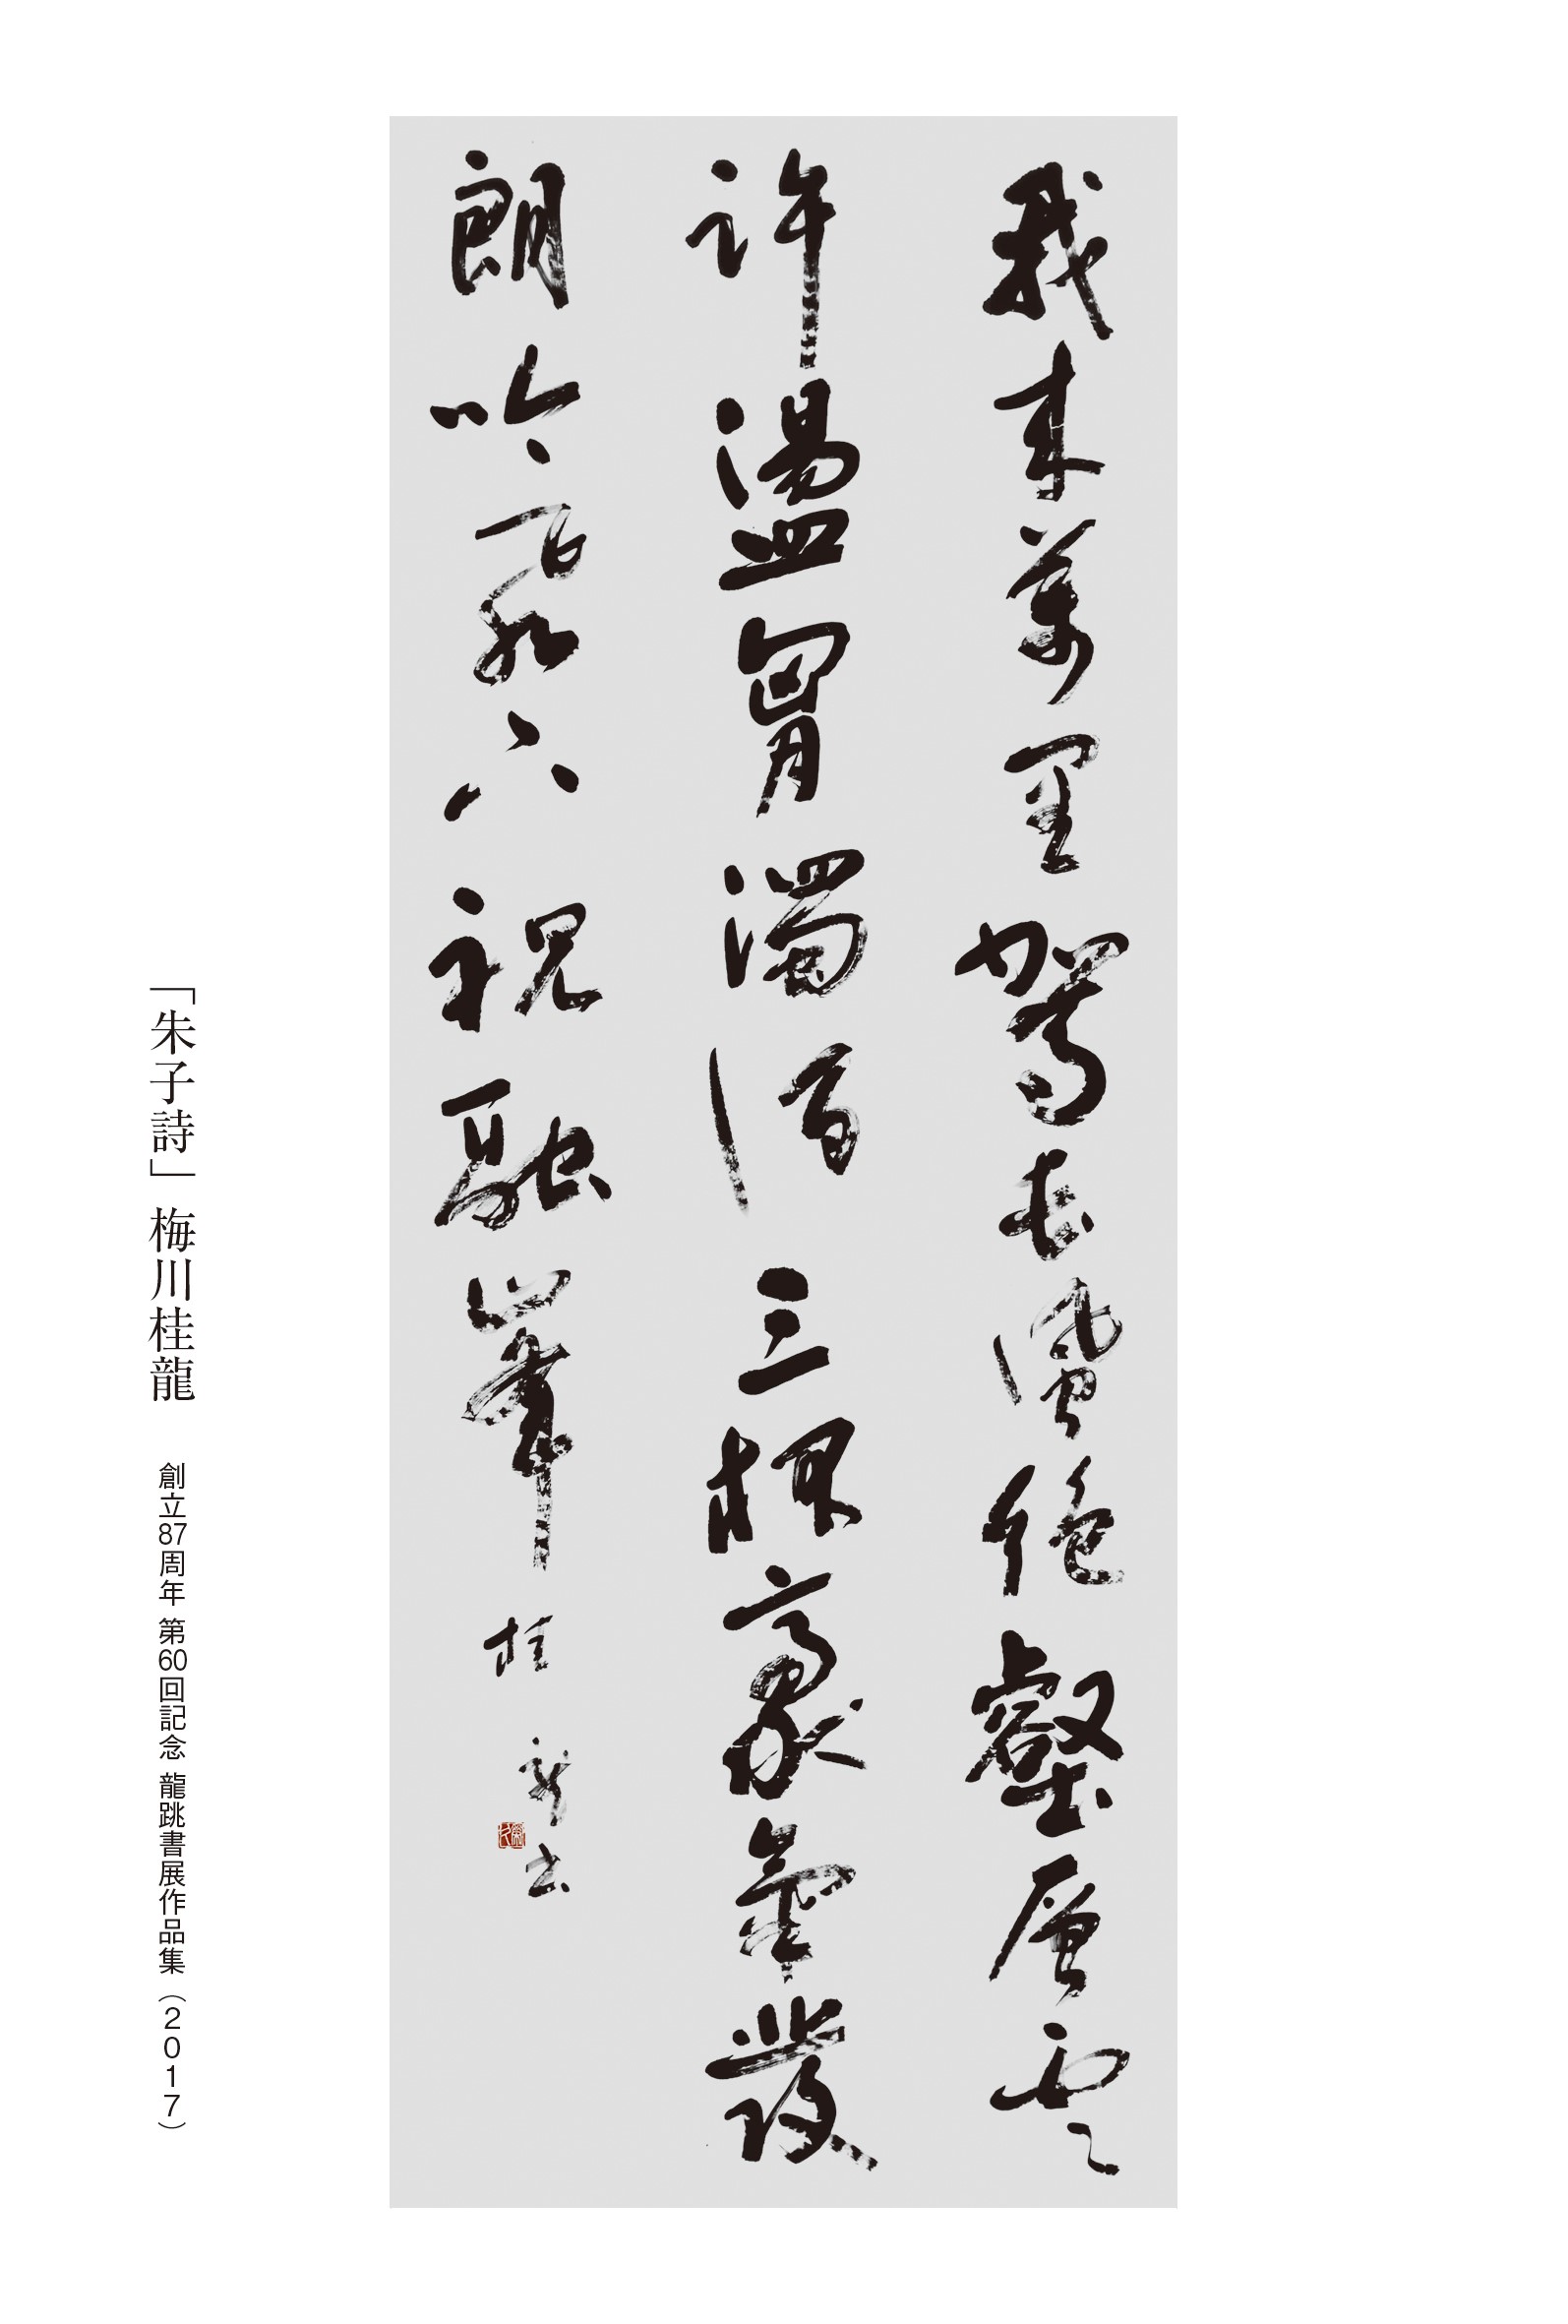 我来萬里駕長風絶壑層雲
許盪胷濁酒三杯豪氣發
朗吟飛下祝融峯 桂龍書
「朱子詩」 梅川桂龍 創立87周年 第60回記念 龍跳書展作品集（2017）